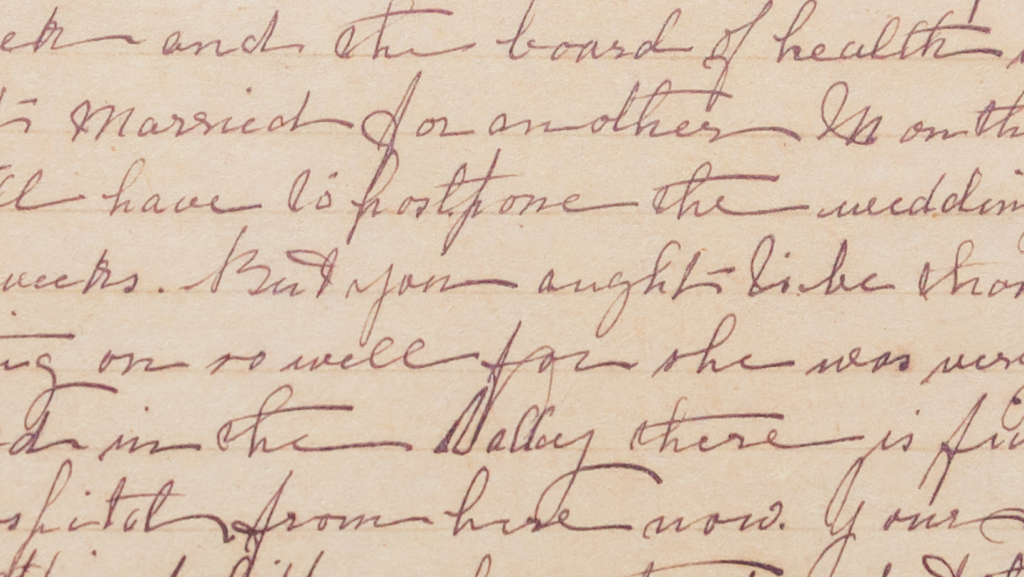 and the board of health
married for another Month
have to postpone the weddin
weeks. But you aught to be than
ing on so well for she was very
d in the Valley there is fi
spital from here now. Your